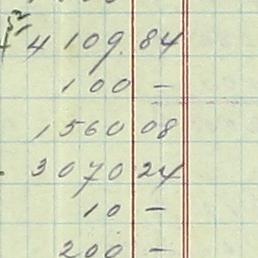 4 109.84
100 —
1560 08
3070 24
10 —
200 —